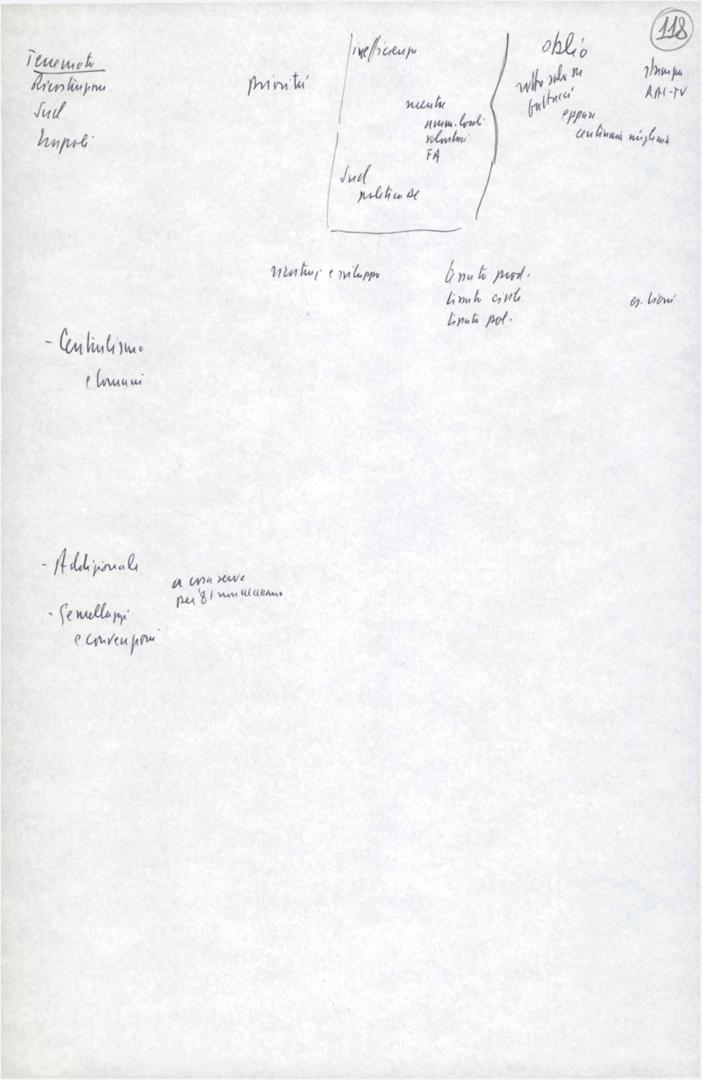 118
Terremoto
Ricostruzione
Sud
Napoli
priorità
inefficienza
mentre
amm. locali
volontari
FA
Sud
politica DC
oblio
rotto solo su
eppure
centinaia migliaia
stampa
RAI-TV
ricostruz e sviluppo
tessuto prod.
tessuto civile
tessuto pol.
es. Lioni
- Centralismo
e Comuni
- Addizionale
a cosa serve
per 81 non
- Gemellaggi
e convenzioni